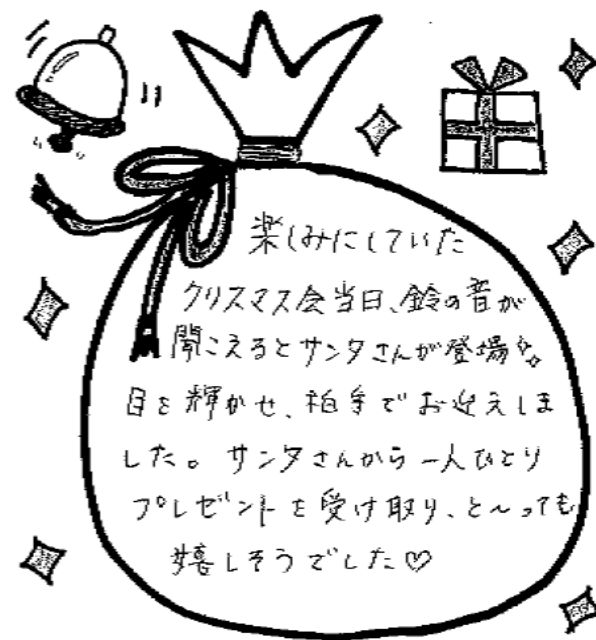 楽しみにしていた
クリスマス会当日、鈴の音が
聞こえるとサンタさんが登場✨
目を輝かせ、拍手でお迎えしま
した。サンタさんから一人ひとり
プレゼントを受け取り、と〜っても
嬉しそうでした♡